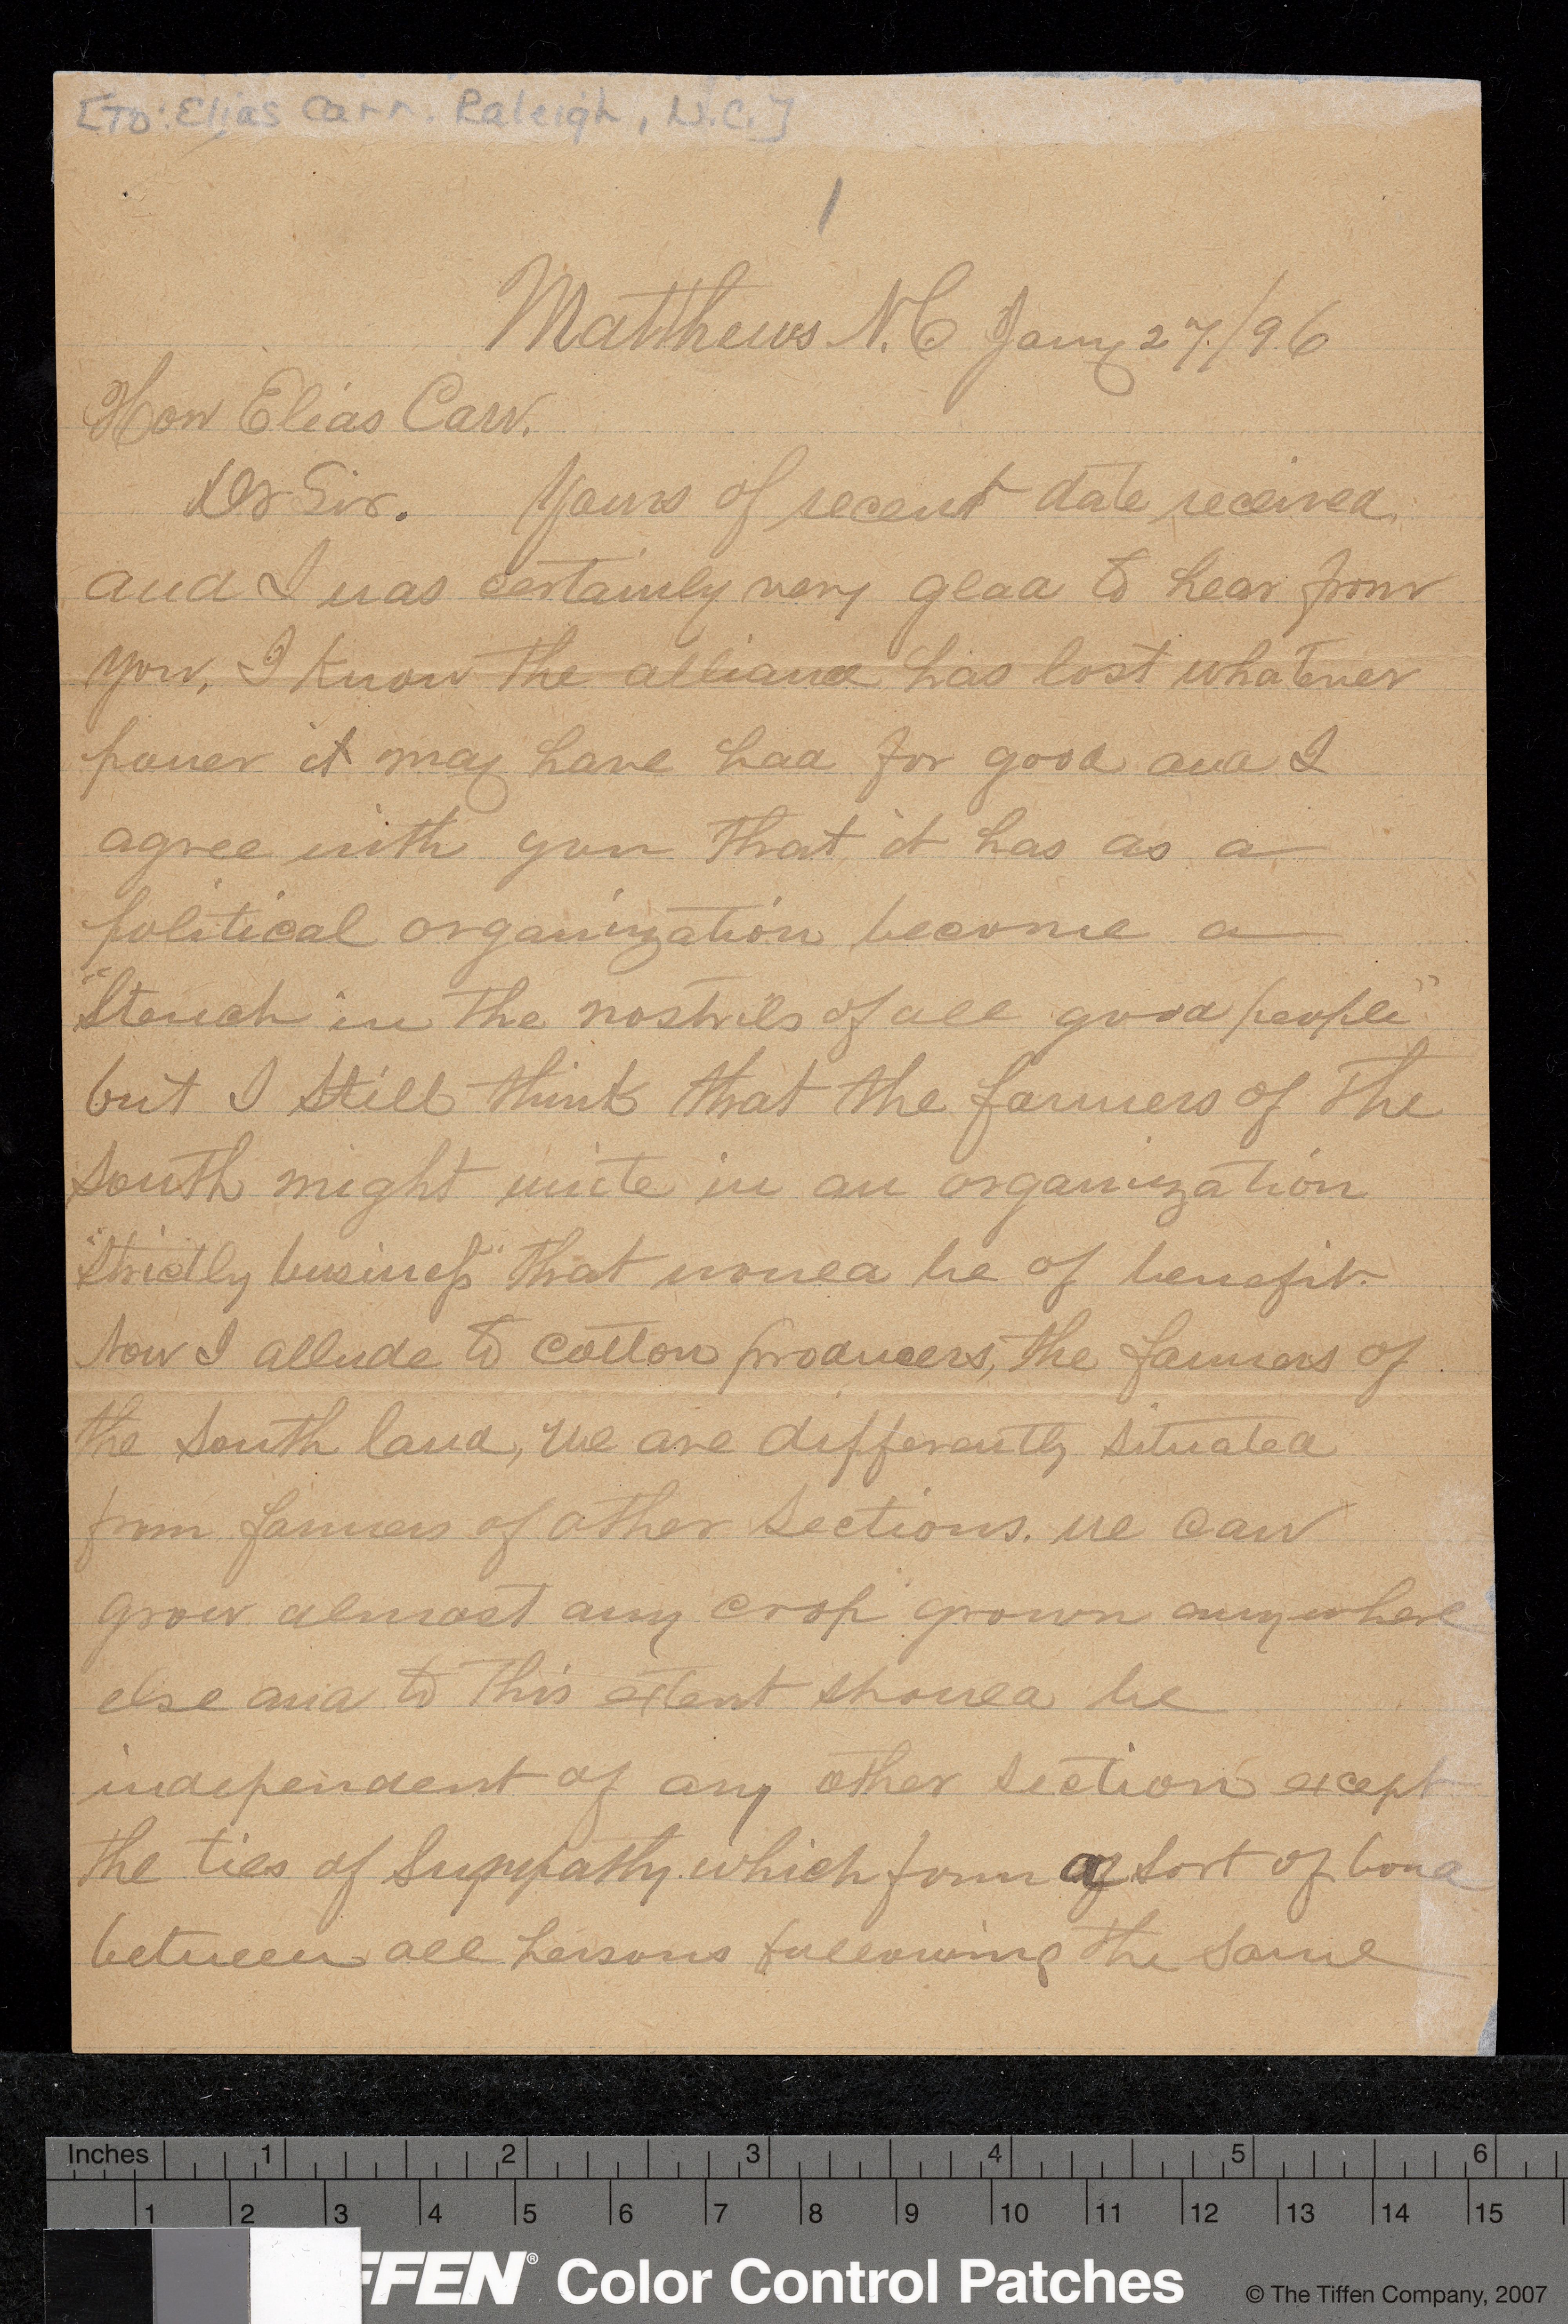 [To: Elias Carr. Raleigh, N.C.]
1
Matthews N.C Jany 27./96
Hon Elias Carr.
Dr Sir. Yours of recent date received
and I was certainly very glad to hear from
you, I know the alliance has lost whatever
power it may have had for good and I
agree with you that it has as a
political organization become a
"Stench in the nostrils of all good people"
but I still think that the farmers of the
South might unite in an organization
"Strictly business" that would be of benefit.
Now I allude to cotton producers, the farmers of
the South land, we are differently situated
from farmers of other Sections. we can
grow almost any crop grown anywhere
else and to this extent should be
independent of any other section except
the ties of Sympathy which form a sort of bond
between all persons following the same
Inches 1 2 3 4 5 6
1 2 3 4 5 6 7 8 9 10 11 12 13 14 15
FFEN® Color Control Patches © The Tiffen Company, 2007